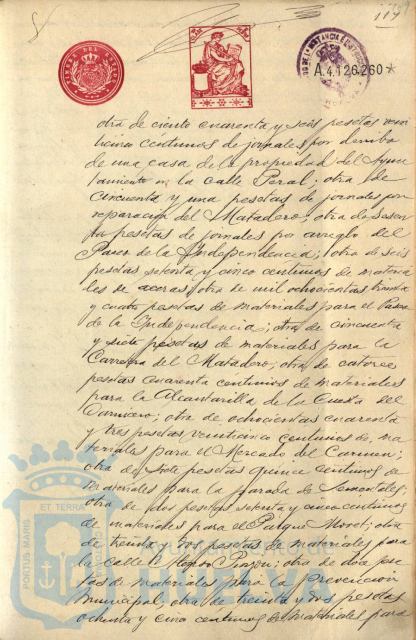 119
TIMBRE DEL ESTADO
A.4.126.260*
otra de ciento cuarenta y seis pesetas vein
ticinco centimos de jornales por derribo
de una casa de la propiedad del Ayun
tamiento en la calle Peral; otra de
cincuenta y una pesetas de jornales por
reparacion del Matadero; otra de sesen
ta pesetas de jornales por arreglo del
Paseo de la Independencia; otra de seis
pesetas setenta y cinco centimos de materia
les de aceras; otra de mil ochocientas treinta
y cuatro pesetas de materiales para el Paseo
de la Independencia; otra de cincuenta
y siete pesetas de materiales para la
Carretera del Matadero; otra de catorce
pesetas cuarenta centimos de materiales
para la Alcantarilla de la Cuesta del
Carnicero; otra de ochocientas cuarenta
y tres pesetas veinticinco centimos de ma
teriales para el Mercado del Carmen;
otra de siete pesetas quince centimos de
materiales para la parada de Sementales;
otra de dos pesetas setenta y cinco centimos
de materiales para el Parque Moret; otra
de treinta y dos pesetas de materiales para
la calle Alonso Pinzon; otra de doce pese
tas de materiales para la Prevencion
municipal; otra de treinta y dos pesetas
ochenta y cinco centimos de materiales para
PORTUS MARIS ET TERRAE
Ayuntamiento de
HUELVA